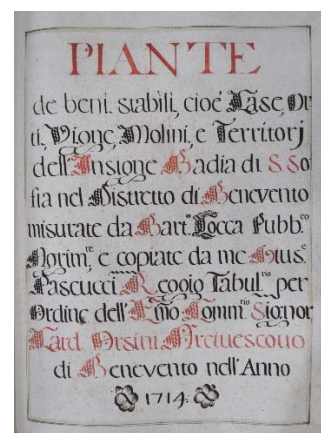 PIANTE
de beni stabili, cioè Case, Or
ti, Vigne, Molini, e Territorj
dell'Insigne Badia di S. So
fia nel Distretto di Benevento
misurate da Bart. Cocca Pubb.co
Agrim.re, e copiate da me Gius.e
Pascucci Regio Tabul.rio per
Ordine dell'Emo Comm.rio Signor
Card. Orsini Arcivescovo
di Benevento nell'Anno
1714.